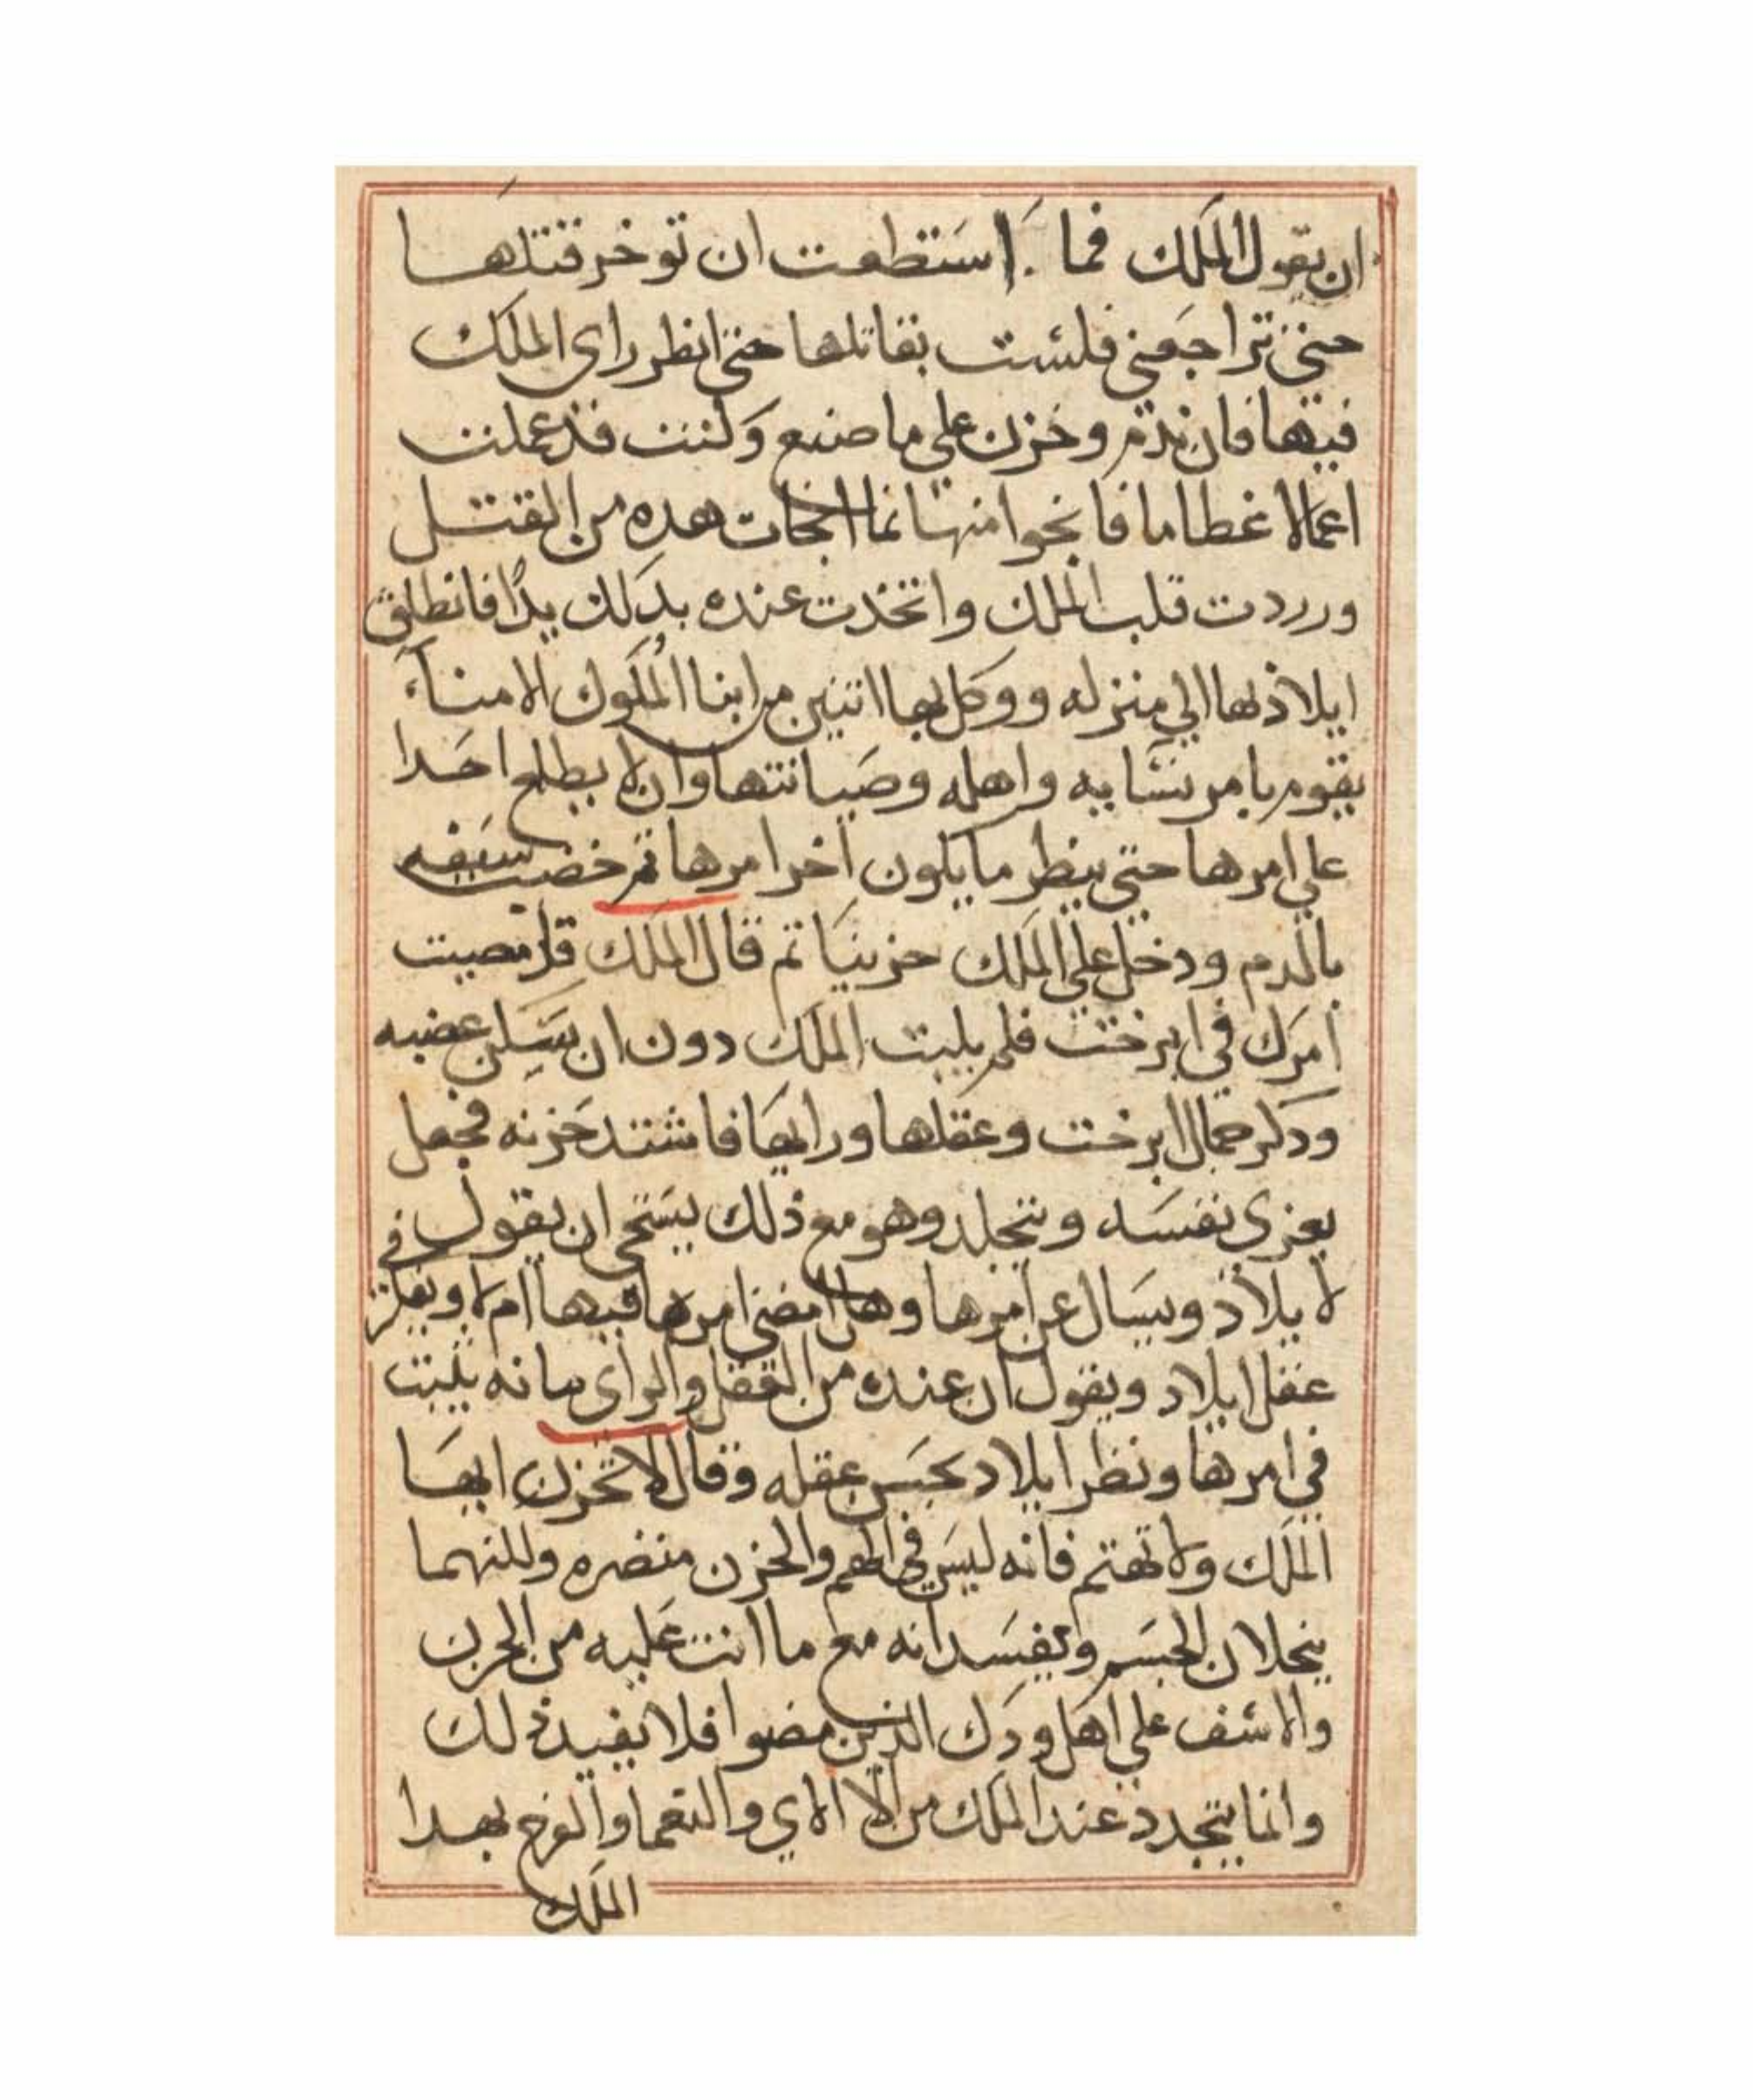 ان يقول الملك فما استطعت ان توخر قتلها
حتي تراجعني فلست بقاتلها حتي انظر راي الملك
فيها فان ندم وحزن علي ما صنع وكنت قد عملت
اعمالا عظاما فانجوا منها نما انجات هده من القتل
ورددت قلب الملك واتخذت عنده بدلك يدًا فانطلق
ايلاذ بها الي منزله ووكل بها اتنين من ابنا المُلوك الامناء
يقوم بامر نسايه واهله وصيانتها وان لا يطلع احدا
علي امرها حتي ينظر ما يكون اخر امرها تم خضب سيفه
بالدم ودخل علي الملك حزينا تم قال الملك قد امضيت
امرك في ابرخت فلم يلبت الملك دون ان سكن غضبه
ودكر جمال ابرخت وعقلها ورايها فاشتد حزنه فجعل
يعزي نفسه ويتجلد وهو مع ذلك يستحي ان يقول في
لا يلاذ ويسال عن امرها وهل امضي امرها فيها ام لا ويفكر
عقل ايلاد ويقول ان عنده من العقل والراي سانه يثبت
في امرها ونظر ايلاد بحسن عقله وقال لا تحزن ايها
الملك ولا تهتم فانه ليس في الهم والحزن منضره وللنهما
ينحلان الجسم ويفسدانه مع ما انت عليه من الحزن
والاسف علي اهل ودك الذين مضوا فلا يفيد ذلك
وانما يتجدد عند الملك من الا الاي والنعما والفرح بهدا
الملك